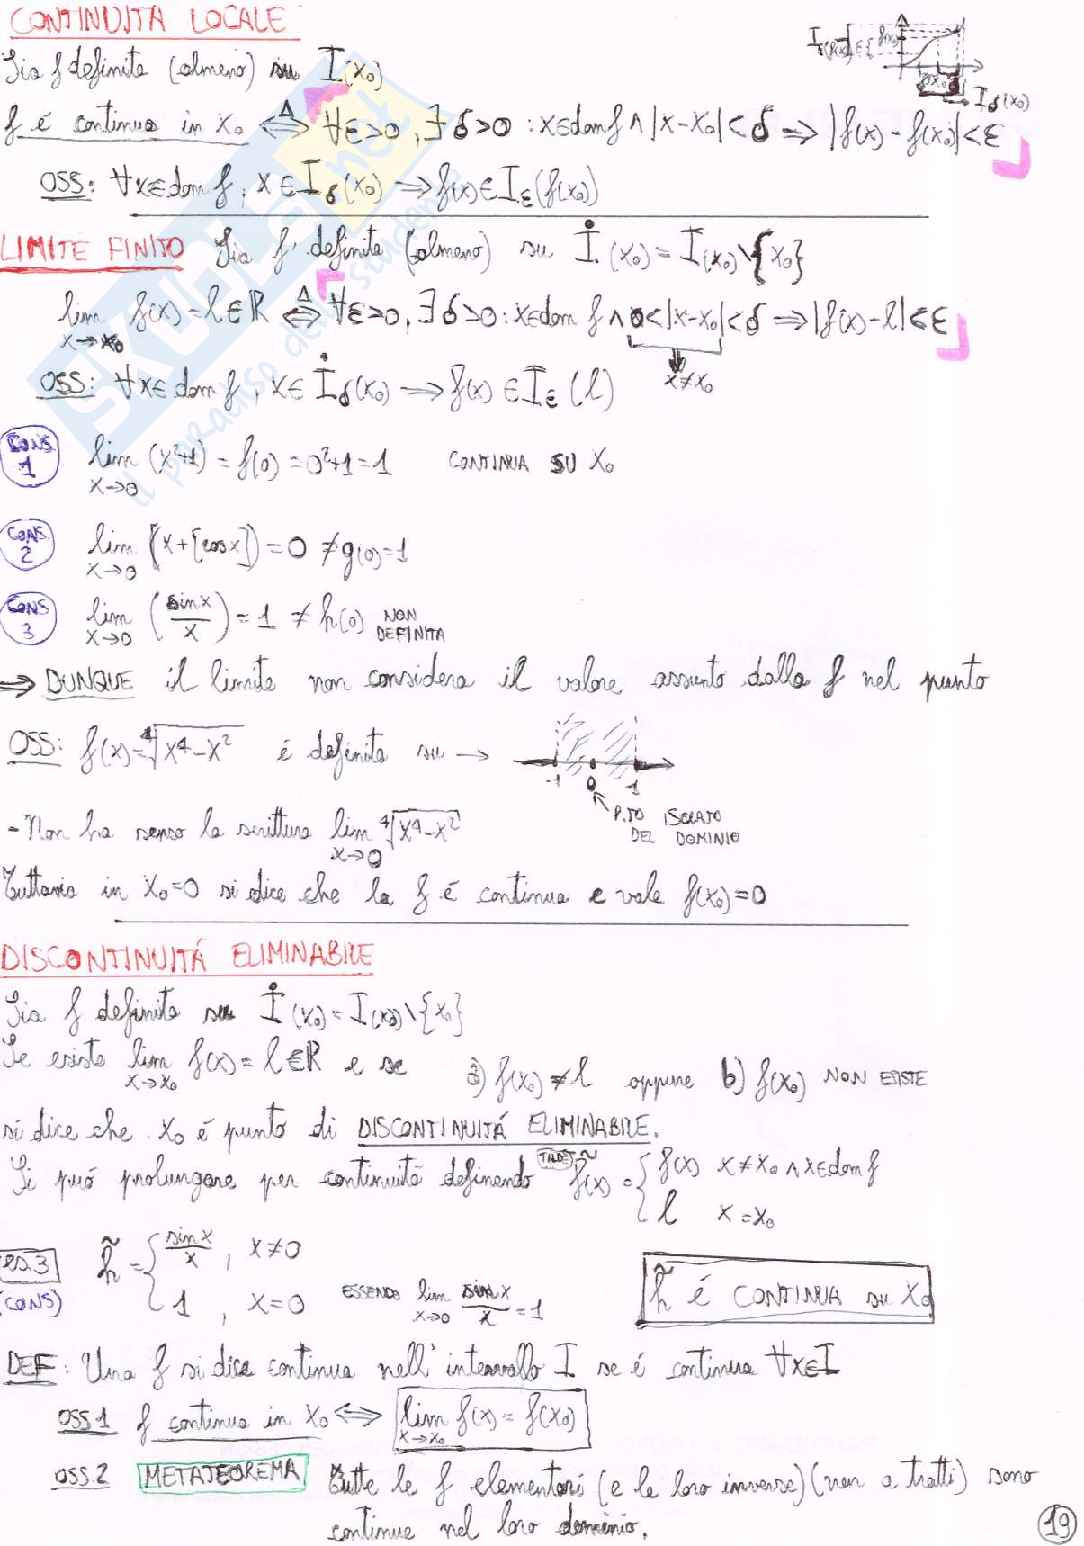 CONTINUITÀ LOCALE
Sia f definita (almeno) su I(x₀)
f è continua in x₀ ⇔Δ ∀ε>0, ∃δ>0 : x∈dom f ∧ |x-x₀|<δ ⇒ |f(x) - f(x₀)|<ε
I_δ(x₀)
OSS: ∀x∈dom f, x∈I_δ(x₀) ⇒ f(x)∈I_ε(f(x₀))
LIMITE FINITO Sia f definita (almeno) su İ(x₀) = I(x₀)\{x₀}
lim x→x₀ f(x) = l∈ℝ ⇔Δ ∀ε>0, ∃δ>0 : x∈dom f ∧ 0<|x-x₀|<δ ⇒ |f(x) - l|<ε
x≠x₀
OSS: ∀x∈dom f, x∈İ_δ(x₀) → f(x)∈I_ε(l)
CONS 1 lim x→0 (x²+1) = f(0) = 0²+1 = 1 CONTINUA SU x₀
CONS 2 lim x→0 (x+[cosx]) = 0 ≠ g(0)=1
CONS 3 lim x→0 (sinx/x) = 1 ≠ h(0) NON DEFINITA
⇒ DUNQUE il limite non considera il valore assunto dalla f nel punto
OSS: f(x)=⁴√(x⁴-x²) é definita su →
-1 0 1
P.TO ISOLATO DEL DOMINIO
- Non ha senso la scrittura lim x→0 ⁴√(x⁴-x²)
Tuttavia in x₀=0 si dice che la f é continua e vale f(x₀)=0
DISCONTINUITÁ ELIMINABILE
Sia f definita su İ(x₀) = I(x₀)\{x₀}
Se esiste lim x→x₀ f(x) = l∈ℝ e se a) f(x₀)≠l oppure b) f(x₀) NON ESISTE
si dice che x₀ é punto di DISCONTINUITÁ ELIMINABILE.
Si puó prolungare per continuitá definendo f̃(x) = { f(x) x≠x₀ ∧ x∈dom f
l x=x₀
es.3 (CONS) h̃ = { sinx/x , x≠0
1 , x=0 ESSENDO lim x→0 sinx/x = 1
h̃ é CONTINUA su x₀
DEF: Una f si dice continua nell'intervallo I se é continua ∀x∈I
OSS1 f continua in x₀ ⇔ lim x→x₀ f(x) = f(x₀)
OSS.2 METATEOREMA Tutte le f elementari (e le loro inverse) (non a tratti) sono
continue nel loro dominio.
19
SKUOLA.net
il paradiso dello studente